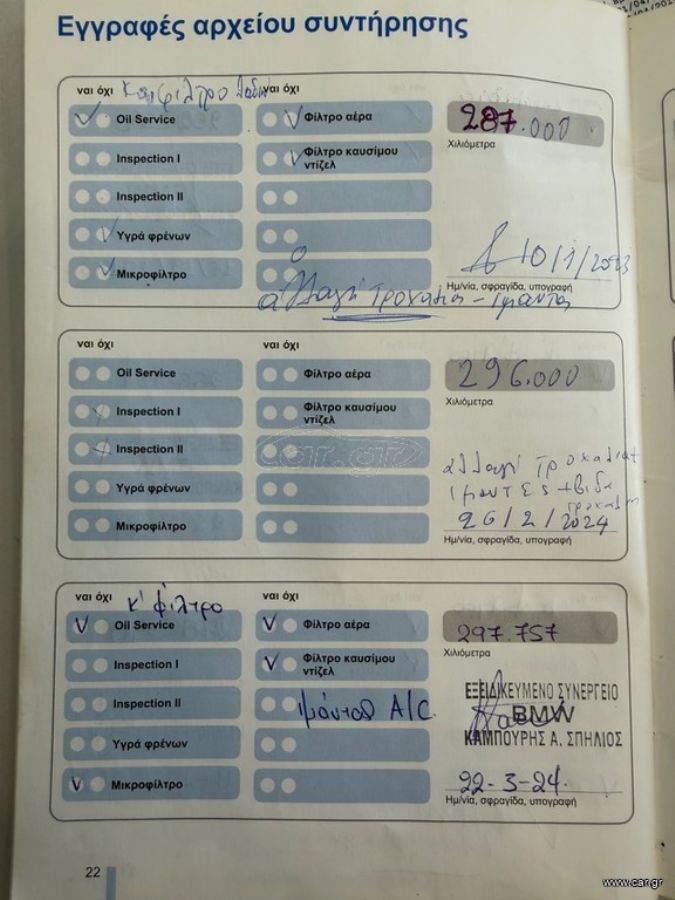 Εγγραφές αρχείου συντήρησης
ναι όχι Και φίλτρο λαδιού ναι όχι
Oil Service Φίλτρο αέρα 287.000
Inspection I Φίλτρο καυσίμου ντίζελ Χιλιόμετρα
Inspection II
Υγρά φρένων
Μικροφίλτρο 10/1/2023
Ημ/νία, σφραγίδα, υπογραφή
αλλαγή τροχαλία - ιμαντας
ναι όχι ναι όχι
Oil Service Φίλτρο αέρα 296.000
Inspection I Φίλτρο καυσίμου ντίζελ Χιλιόμετρα
Inspection II
car.gr
αλλαγή τροχαλίας
Υγρά φρένων ιμαντες + βιδα
τροχαλια
Μικροφίλτρο 26/2/2024
Ημ/νία, σφραγίδα, υπογραφή
ναι όχι κ' φίλτρο ναι όχι
Oil Service Φίλτρο αέρα 297.757
Inspection I Φίλτρο καυσίμου ντίζελ Χιλιόμετρα
Inspection II ιμάντας A/C
ΕΞΕΙΔΙΚΕΥΜΕΝΟ ΣΥΝΕΡΓΕΙΟ
BMW
Υγρά φρένων ΚΑΜΠΟΥΡΗΣ Α. ΣΠΗΛΙΟΣ
Μικροφίλτρο 22-3-24.
Ημ/νία, σφραγίδα, υπογραφή
22
www.car.gr